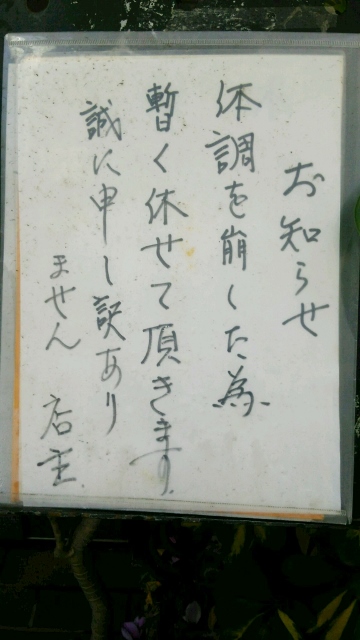 お知らせ
体調を崩した為
暫く休せて頂きます
誠に申し訳あり
ません　店主